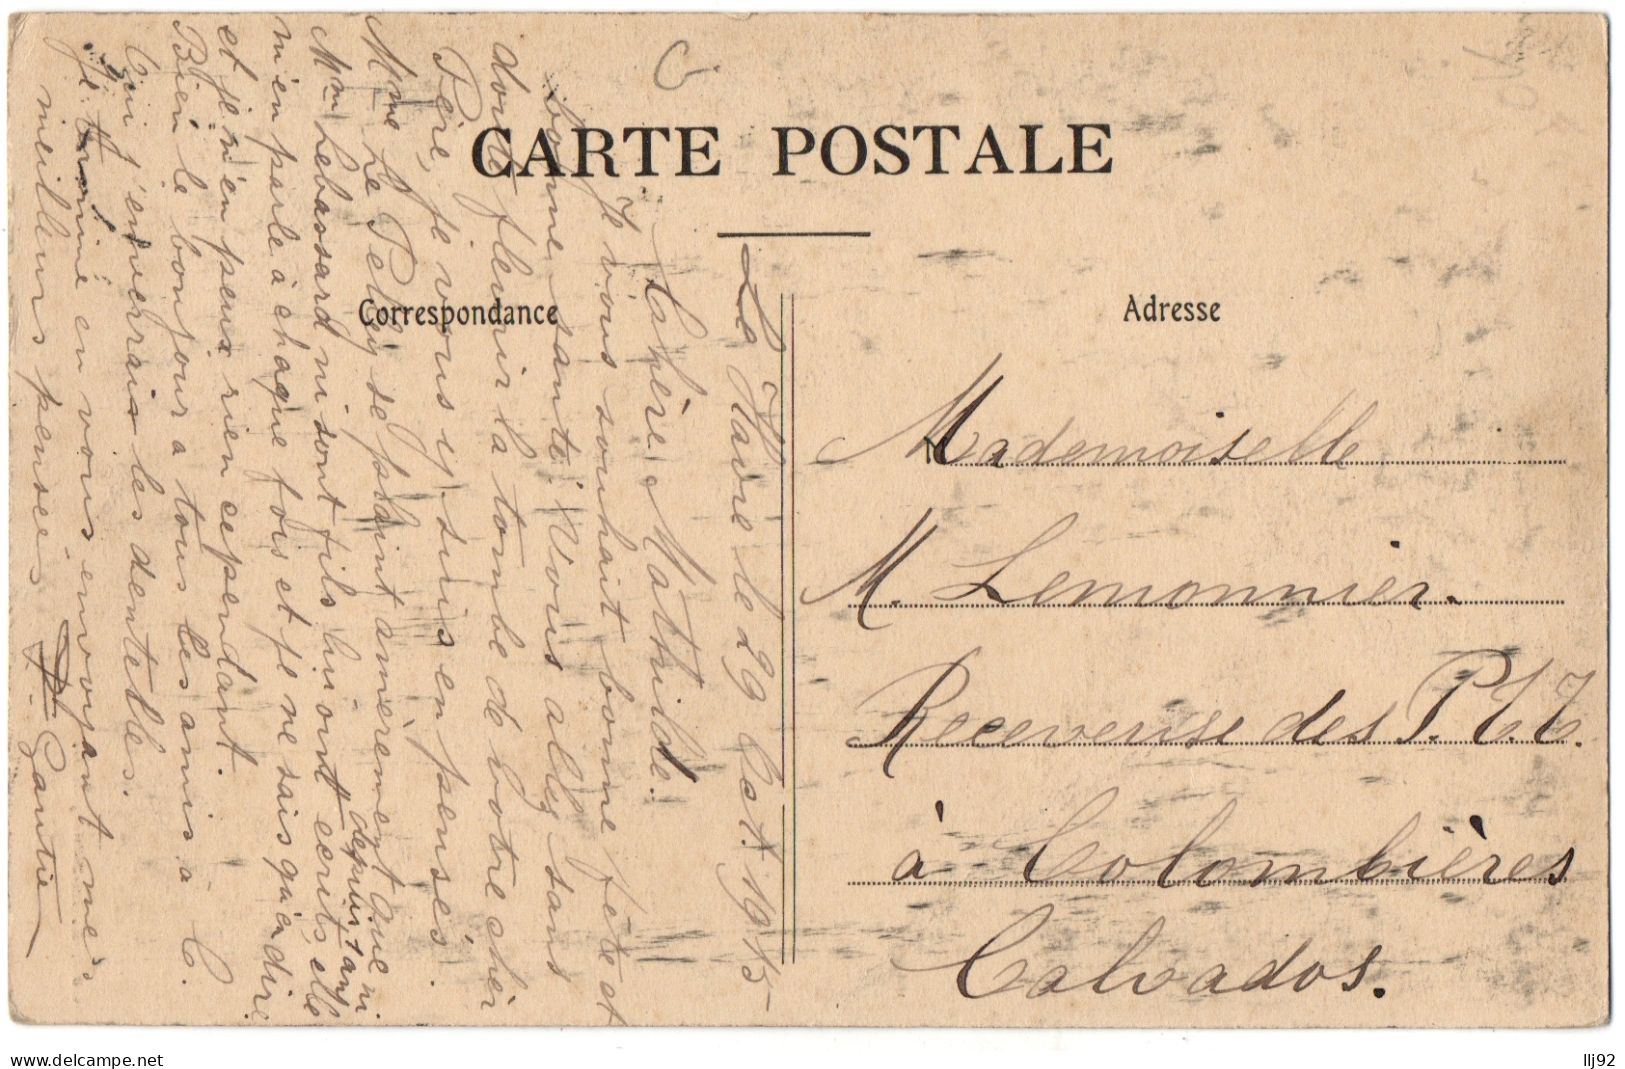 CARTE POSTALE
Correspondance
Adresse
Le Havre le 29 Oct. 1915
Ma chère Mathilde.
Je vous souhait bonne fête et
bonne santé. Vous allez sans
doute fleurir la tombe de votre cher
Père, je vous y suis en pensées.
Mme Le Pelley se plaint amèrement que ni
Mme Lebassard ni sont fils lui ont ecrits, elle
depuis tant
m'en parle à chaque fois et je ne sais qu'en dire
et je n'en peux rien cependant.
Bien le bonjour a tous les amis à C.
Qui j'enverrais les dentelles.
Je termine en vous envoyant mes
meilleurs pensées Gautie
Mademoiselle
M. Lemonnier.
Receveuse des P.T.T.
à Colombières
Calvados.
www.delcampe.net
llj92